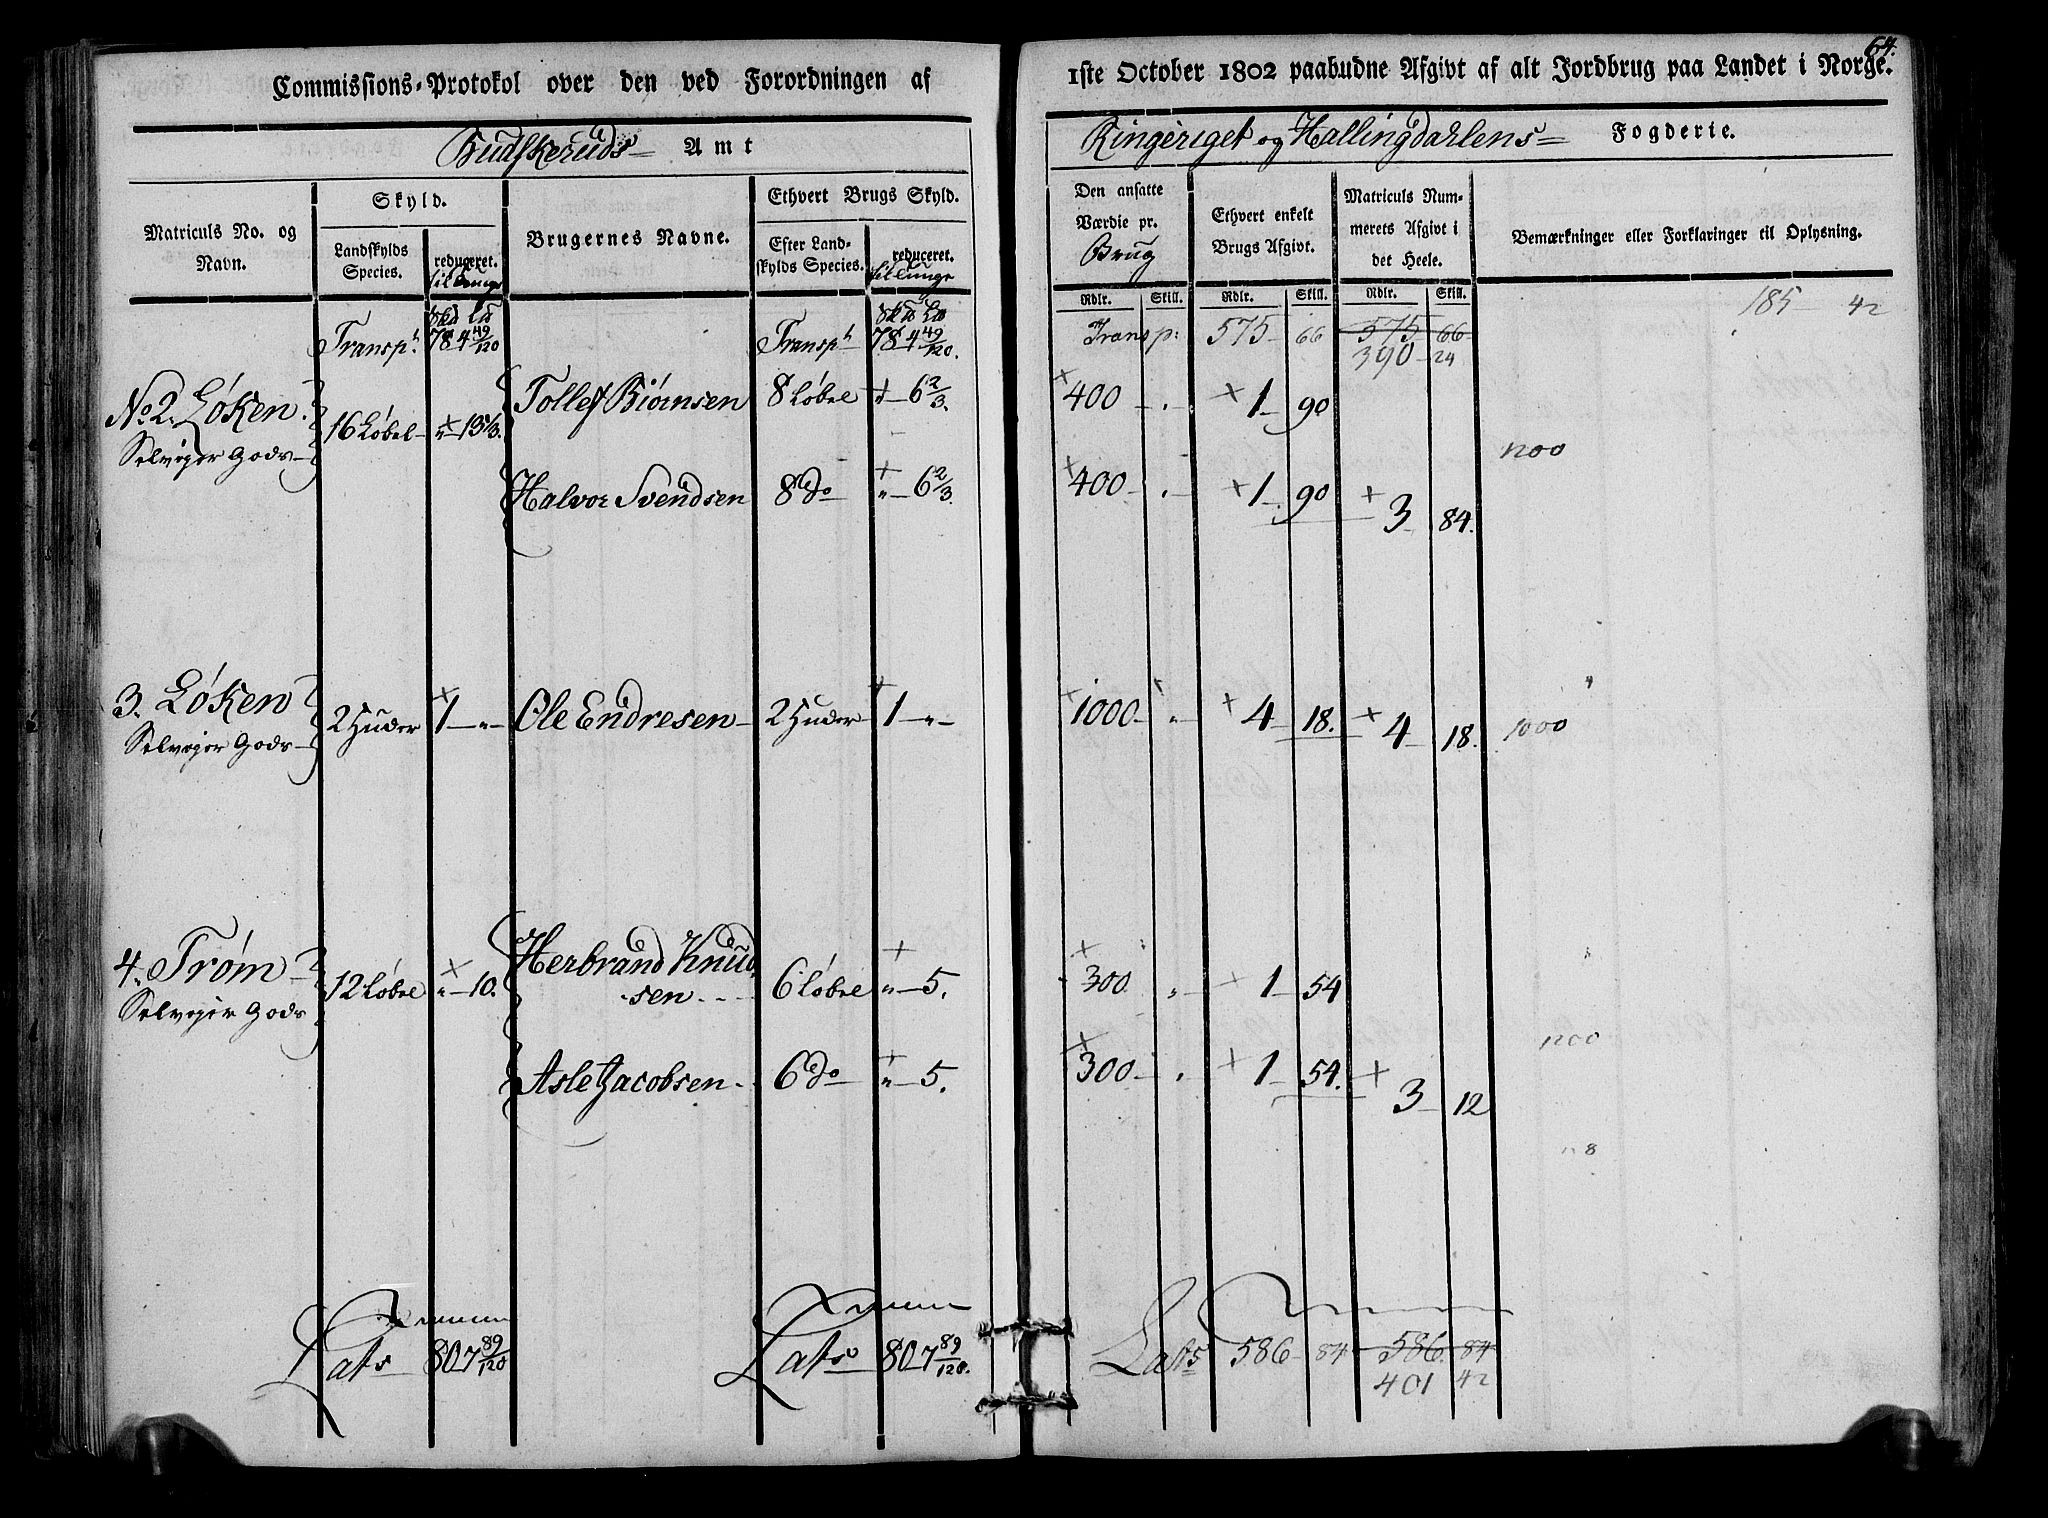 64.
Commissions-Protokol over den ved Forordningen af 1ste October 1802 paabudne Afgivt af alt Jordbrug paa Landet i Norge.
Budskeruds Amt
Ringeriget og Hallingdahlens Fogderie.
Matriculs No. og Navn.
Skyld.
Landskylds Species.
reduceret.
til Tunge
Brugernes Navne.
Ethvert Brugs Skyld.
Efter Landskylds Species.
reduceret.
til Tunge
Den ansatte Værdie pr. Brug
Ethvert enkelt Brugs Afgivt.
Matriculs Nummerets Afgivt i det Heele.
Bemærkninger eller Forklaringer til Oplysning.
Rdlr. Skill. Rdlr. Skill. Rdlr. Skill.
185 42
Skd Ld Skd Ld
Transpt 78 4 49/120 Transpt 78 4 49/120. Transp: 575 66 575 66
390 24
No 2. Løken 16 Løbel " 13 1/3. Tollef Biørnsen 8 Løbel " 6 2/3. 400 . 1 90
Selveger Gods
1200
Halvor Svendsen 8 do " 6 2/3. 400 . 1 90 3 84.
3. Løken 2 Huder 1 " Ole Endresen 2 Huder 1 " 1000 " 4 18. 4 18. 1000
Selveger Gods
4. Trøm 12 Løbel " 10. Herbrand Knudsen 6 Løbel " 5. 300 " 1 54
Selveger Gods
1200
Asle Jacobsen 6 do " 5. 300 . 1 54. 3 12
Lats 80 7 89/120 Lats 80 7 89/120. Lats 586 84 586 84
401 42